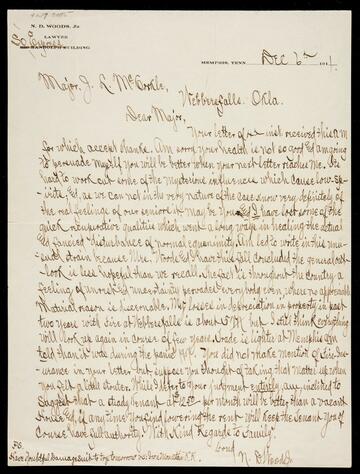 N. D. WOODS, Jr
LAWYER
RANDOLPH BUILDING
MEMPHIS, TENN Dec 6th 191
Major. J. L. McCorkle,
Webbersfalls. Okla.
Dear Major,
Your letter of inst received this am
for which accept thanks. Am sorry your health is not so good & am going
to persuade myself you will be better when your next letter reaches me. Its
hard to work out some of the mysterious influences which cause
as we can not in the very nature of the case know very definitely of
the real feelings of our seniors it may be you & I have lost some of the
quick recuperative qualities which went a long ways in healing the actual
& fancied disturbance of normal equanimity. Am led to write in this
strain because Mrs. Woods & I have this fall concluded the general out-
look is less hopeful than we recall. The fact is throughout the country a
feeling of unrest & uncertainty pervades everybody even where no apparent
material reason is discernable. My losses in depreciation in property in past
two years with fire at Webbersfalls is about but I still think everything
will look up again in course of few years. Trade is lighter at Memphis am
told than it was during the panic You did not make mention of fire insu-
rance in your letter but suppose you thought of taking that matter up when
you felt a little stouter. While I defer to your judgment entirely am inclined to
suggest that a steady tenant at per month will be better than a vacant
house &, if any time you find lowering the rent will keep the tenant you of
course have full authority. With Kind Regards to Family.
Yours
N. D. Woods Jr
P.S.
Have doubtful damage suit to try tomorrow R.R.